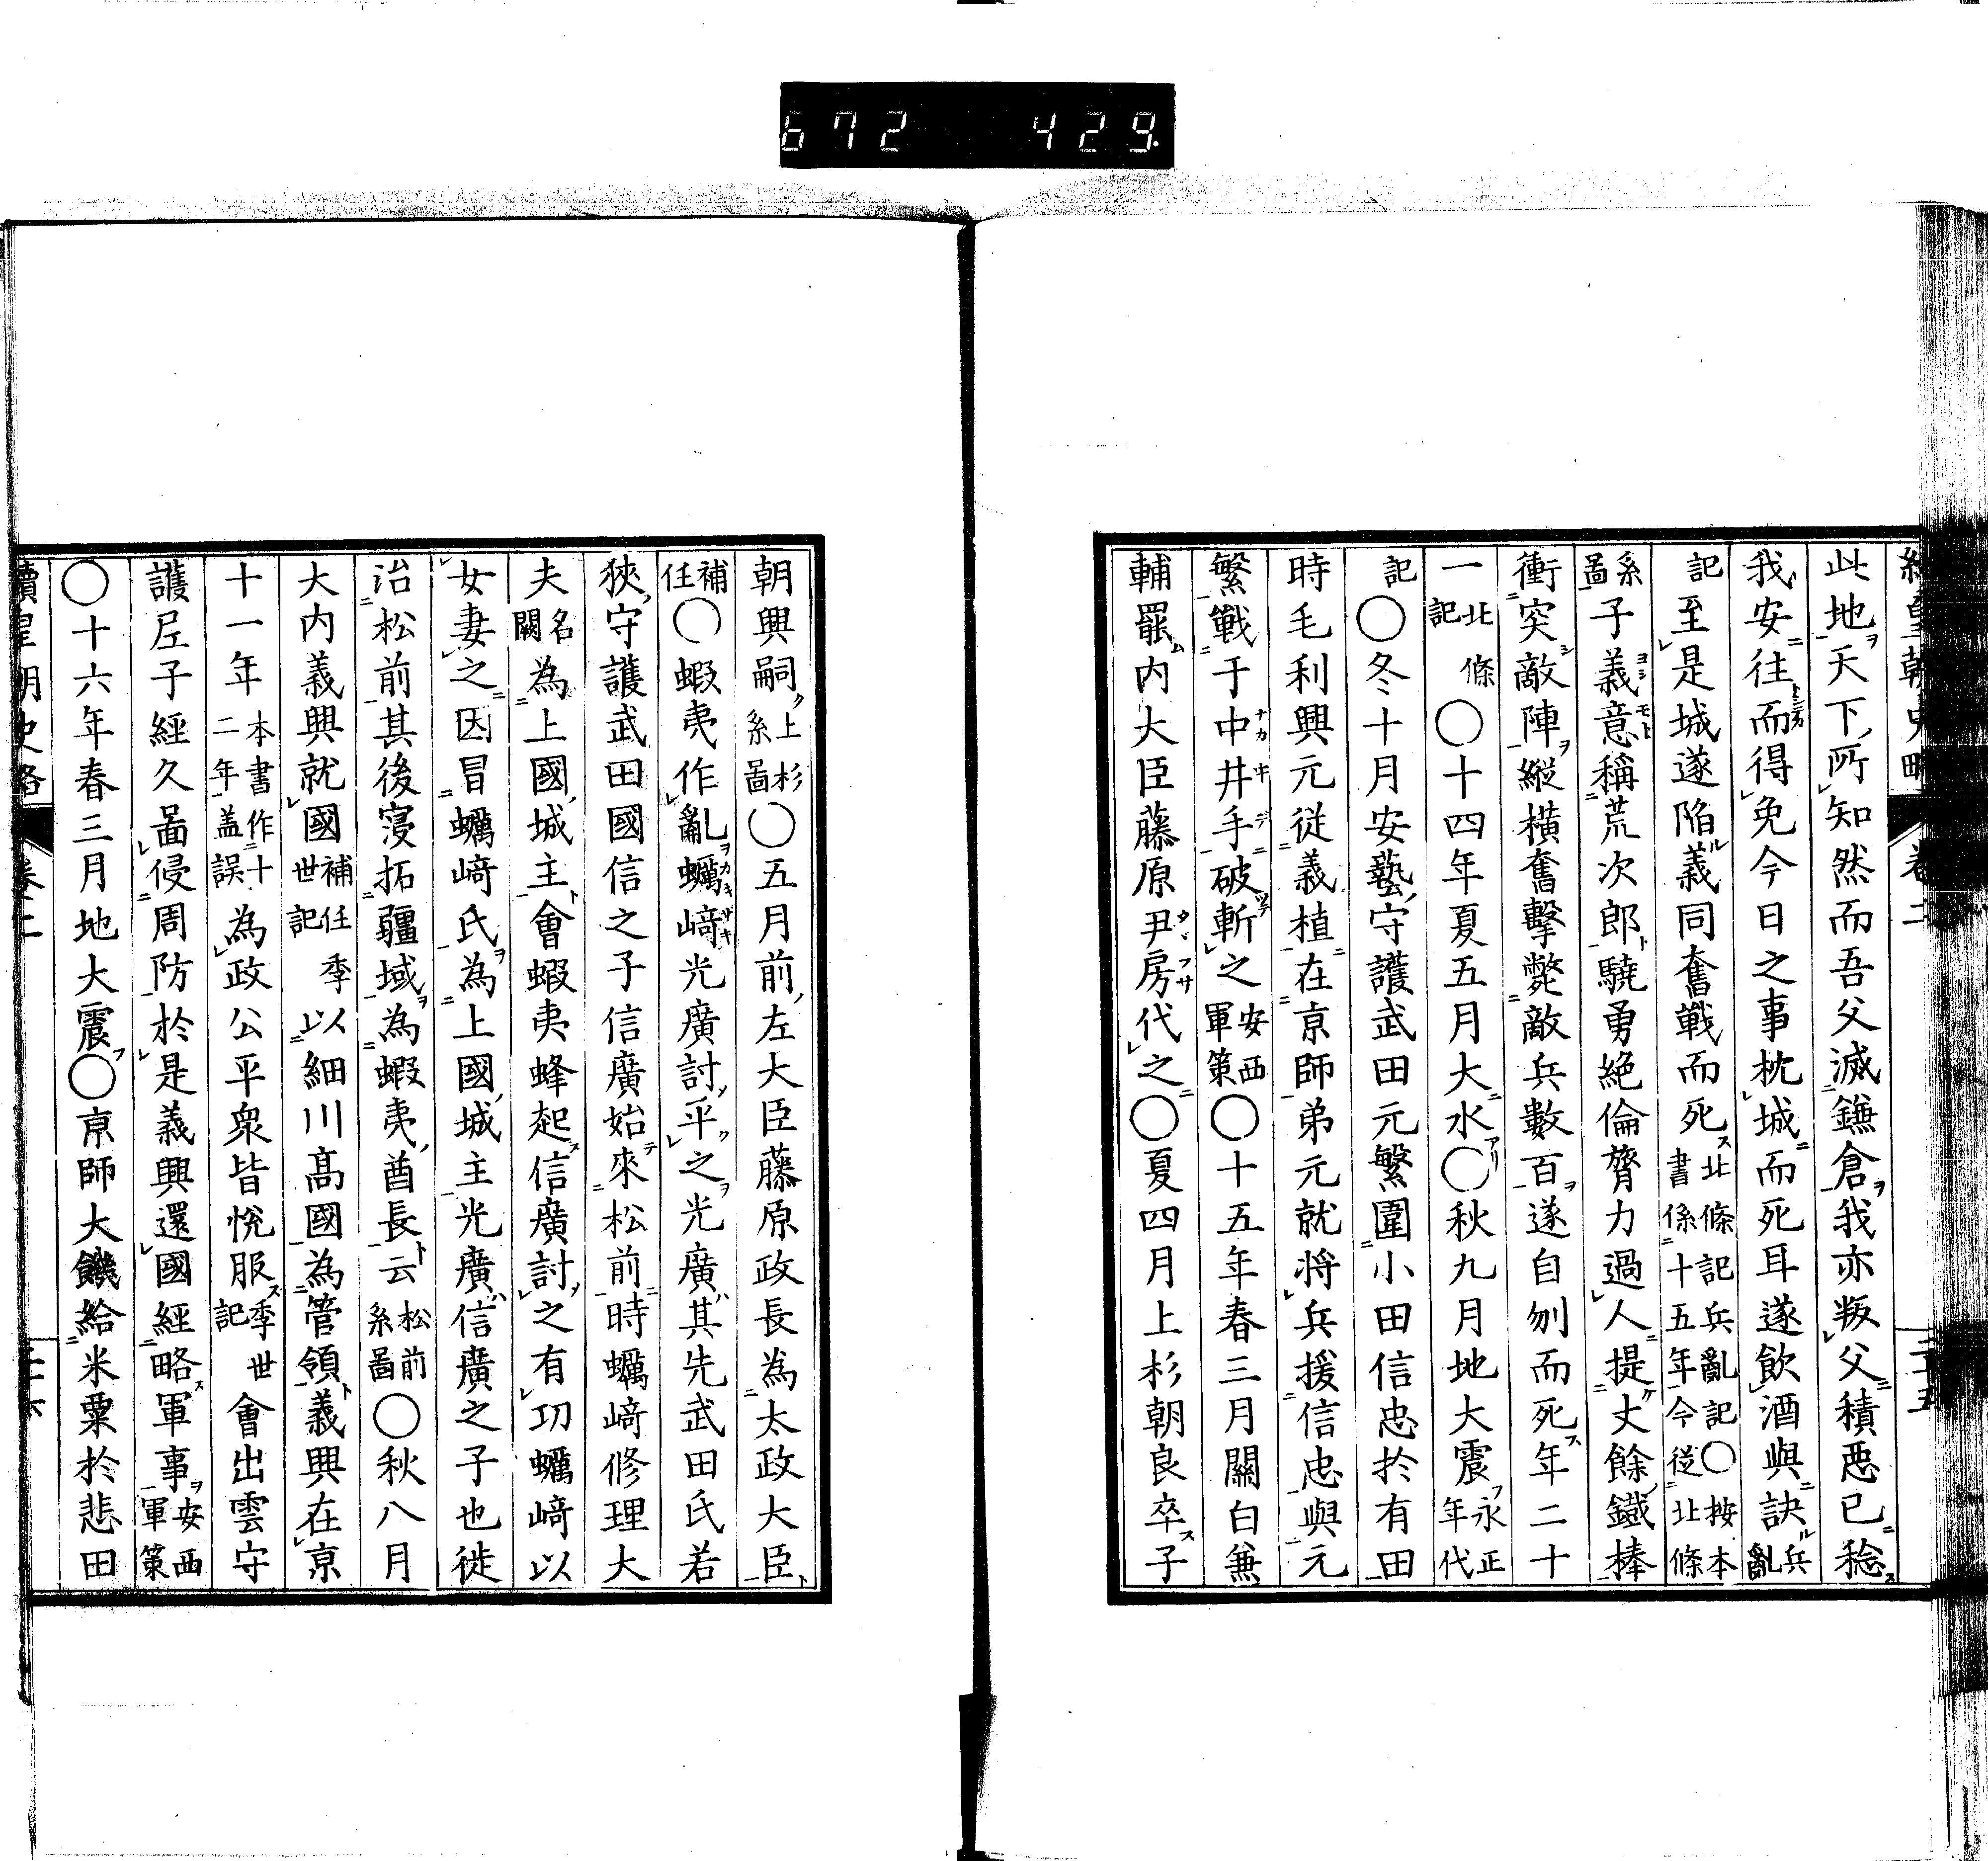 672 429.
此地天下所知然而吾父滅鎌倉我亦叛父積惡已稔
我安往而得免今日之事枕城而死耳遂飲酒與訣兵亂
記至是城遂陷義同奮戰而死北條記兵亂記○按本書係十五年今從北條
系圖子義意稱荒次郎驍勇絶倫膂力過人提丈餘鐵棒
衝突敵陣縱橫奮擊斃敵兵數百遂自刎而死年二十
一北條記○十四年夏五月大水○秋九月地大震永正年代
記○冬十月安藝守護武田元繁圍小田信忠於有田
時毛利興元從義植在京師弟元就將兵援信忠與元
繁戰于中井手破斬之安西軍策○十五年春三月關白兼
輔罷內大臣藤原尹房代之○夏四月上杉朝良卒子
朝興嗣上杉系圖○五月前左大臣藤原政長為太政大臣
補任○蝦夷作亂蠣﨑光廣討平之光廣其先武田氏若
狹守護武田國信之子信廣始來松前時蠣﨑修理大
夫名闕為上國城主會蝦夷蜂起信廣討之有功蠣﨑以
女妻之因冒蠣﨑氏為上國城主光廣信廣之子也徙
治松前其後寖拓疆域為蝦夷酋長云松前系圖○秋八月
大內義興就國補任季世記以細川高國為管領義興在京
十一年本書作十二年蓋誤為政公平衆皆悅服季世記會出雲守
護尼子經久圖侵周防於是義興還國經略軍事安西軍策
○十六年春三月地大震○京師大饑給米粟於悲田